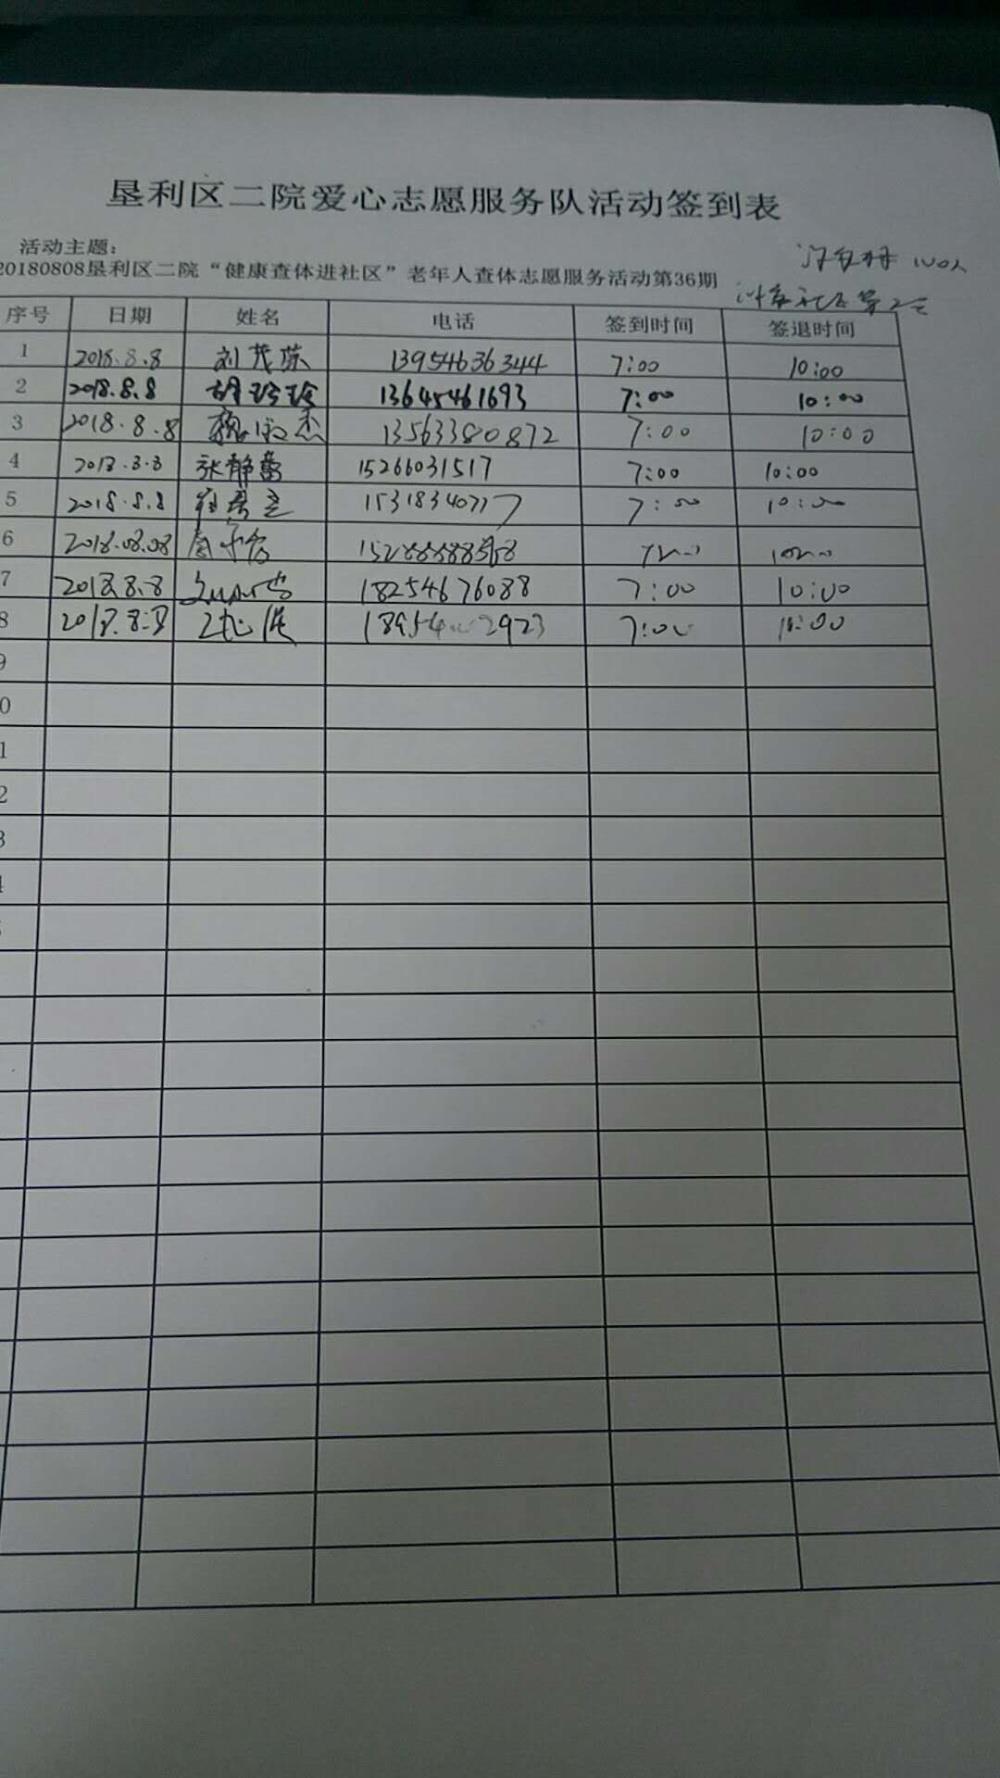 垦利区二院爱心志愿服务队活动签到表
活动主题：
20180808垦利区二院“健康查体进社区”老年人查体志愿服务活动第36期
100人
序号 日期 姓名 电话 签到时间 签退时间
1 2018.8.8 刘茂荪 13954636344 7:00 10:00
2 2018.8.8 胡玲玲 13645461693 7:00 10:00
3 2018.8.8 魏淑杰 13563380872 7:00 10:00
4 2018.8.8 张静 15266031517 7:00 10:00
5 2018.8.8 15318340717 7:00 10:00
6 2018.08.08 7:00 10:00
7 2018.8.8 18254676088 7:00 10:00
8 2018.8.8 7:00 10:00
9
0
1
2
3
4